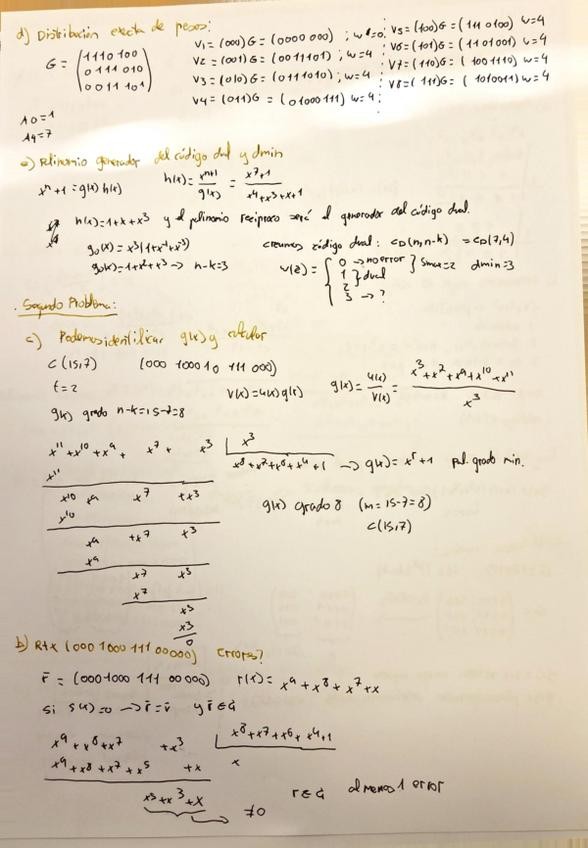 d) Distribución exacta de pesos:
G = (1110 100
0111 010
0011 101)
V1 = (000)G = (0000 000) ; w=0
V2 = (001)G = (0011101) ; w=4
V3 = (010)G = (0111010) ; w=4
V4 = (011)G = (0100111) w=4
V5 = (100)G = (111 0100) w=4
V6 = (101)G = (1101001) w=4
V7 = (110)G = (1001110) w=4
V8 = (111)G = (1010011) w=4
A0=1
A4=7
e) Polinomio generador del código dual y dmin
x^n+1 = g(x) h(x)
h(x) = x^n+1 / g(x) = x^7+1 / x^4+x^3+x+1
h(x)=1+x+x^3 y el polinomio reciproco será el generador del código dual.
g0(x) = x^3(1+x^-1+x^-3)
g0(x)=1+x^2+x^3 -> n-k=3
código dual: CD(n,n-k) = CD(7,4)
0 -> no error
1
2 } dual
3 -> ?
Smax=2 dmin=3
. Segundo Problema:
c) Podemos identificar g(x) y calcular
C(15,7) (000 100010 111 000)
t=2
V(x)=u(x)g(x)
g(x) = u(x) / V(x) = x^3+x^2+x^9+x^10+x^11 / x^3
g(x) grado n-k=15-7=8
x^11+x^10+x^9+ x^7+ x^3 | x^3
x^11
x^8+x^2+x^6+x^4+1 -> g(x)= x^5+1 pol. grado min.
x^10 x^9 x^7 +x^3
x^10
x^9 +x^7 x^3
x^9
x^7 x^3
x^7
x^3
x^3
0
g(x) grado 8 (m=15-7=8)
C(15,7)
b) Rtx (000 1000 111 00000) errores?
r = (0001000 111 00 000) r(x) = x^9+x^8+x^7+x
si s(x)=0 -> r=v y r∈G
x^9+x^8+x^7 +x^3 | x^8+x^7+x^6+x^4+1
x^9+x^8+x^7+x^5 +x
x
x^5+x^3+x
≠0
r∈G al menos 1 error